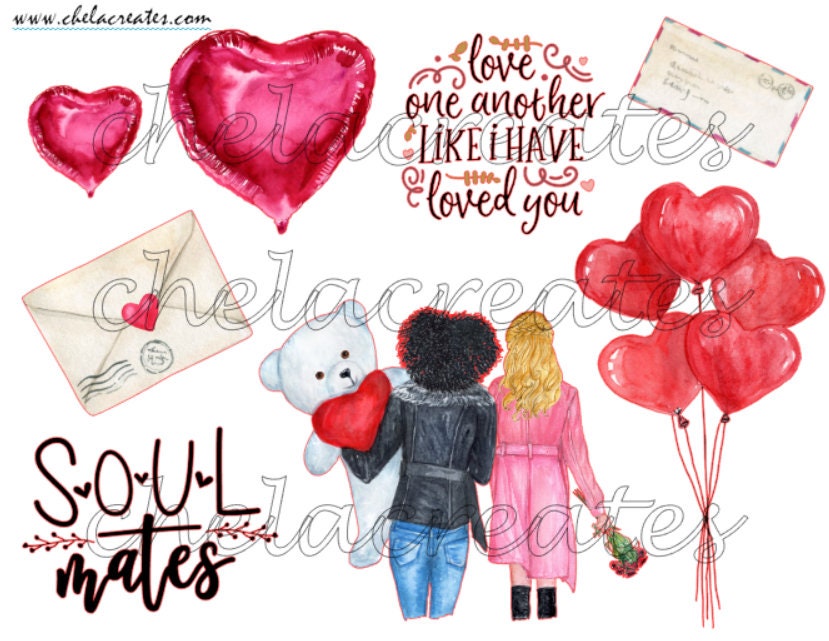 www.chelacreates.com
love
one another
LIKE i HAVE
loved you
chelacreates
chelacreates
SOUL
mates
chelacreates